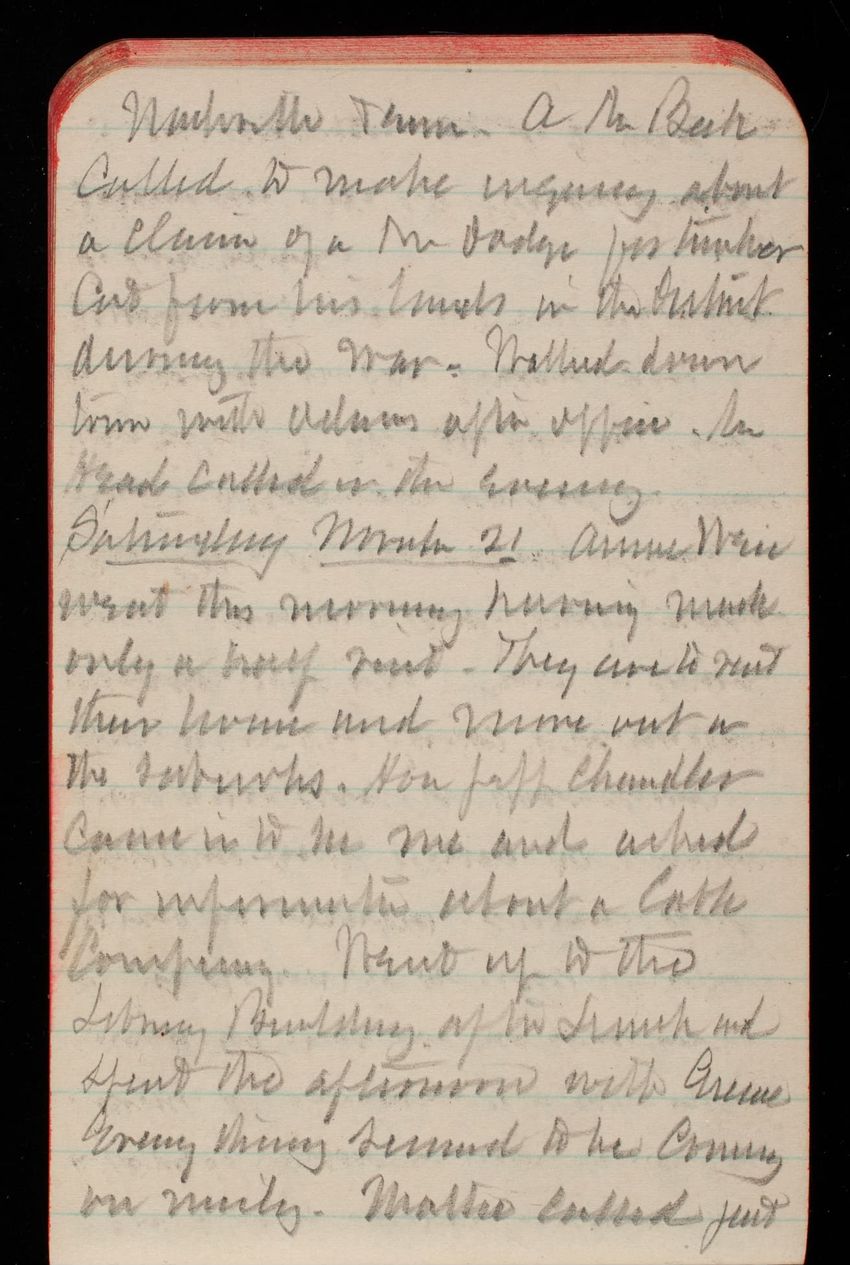 Nashville Tenn. A Mr Beck
Called to make inquiry about
a claim of a Mr Dodge for timber
Cut from his lands in the District
during the War. Walked down
town with Adams after office. Mr
Head called in the evening.
Saturday March 21. Annie Weir
went this morning having made
only a half visit. They are to rent
their house and move out in
the suburbs. Hon Jeff Chandler
Came in to see me and asked
for information about a Cattle
Company. Went up to the
Library Building after Lunch and
spent the afternoon with Green
Every thing seemed to be Coming
on nicely. Mattie called just